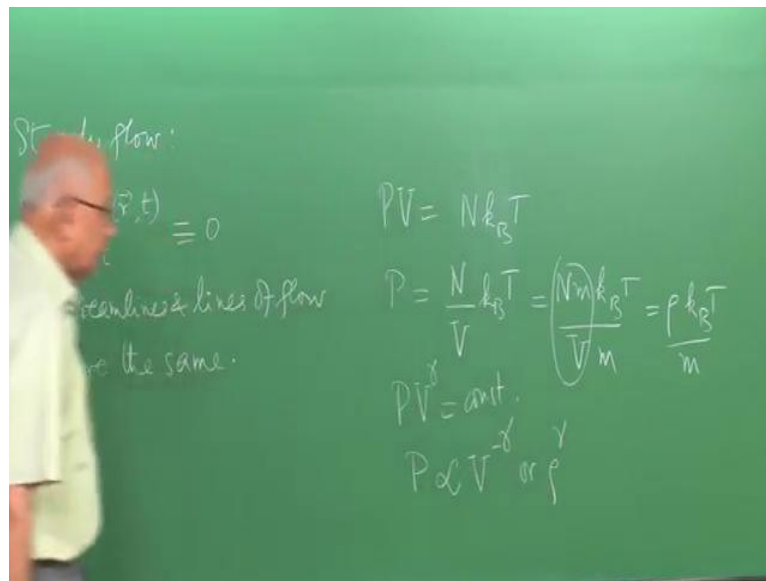 flow:
(r⃗,t)
≡ 0
& lines of flow
the same.
PV = Nk_BT
P = N/V k_BT = (Nm)/V k_BT/m = ρ k_BT/m
PV^γ = const.
P ∝ V^-γ or ρ^γ